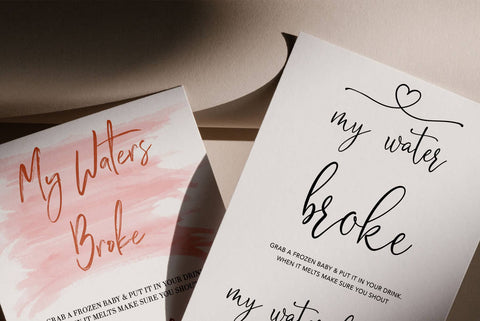 My Waters
Broke
GRAB A FROZEN BABY & PUT IT IN YOUR DRINK.
WHEN IT MELTS MAKE SURE YOU
my water
broke
GRAB A FROZEN BABY & PUT IT IN YOUR DRINK.
WHEN IT MELTS MAKE SURE YOU SHOUT
my water